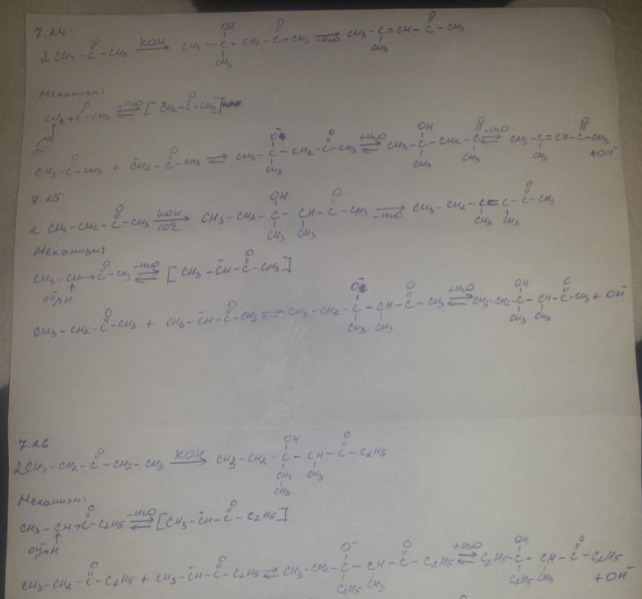 7.24
2 CH₃-C(=O)-CH₃ →(KOH) CH₃-C(OH)(CH₃)-CH₂-C(=O)-CH₃ →(-H₂O) CH₃-C(CH₃)=CH-C(=O)-CH₃
Механизм:
-H₂O ⇌ [ C̄H₂-C(=O)-CH₃ ]
CH₃-C(=O)-CH₃ + C̄H₂-C(=O)-CH₃ ⇌ CH₃-C(O⁻)(CH₃)-CH₂-C(=O)-CH₃ ⇌(+H₂O) CH₃-C(OH)(CH₃)-CH₂-C(=O)-CH₃ ⇌(-H₂O) CH₃-C(CH₃)=CH-C(=O)-CH₃ + OH⁻
7.25
2 CH₃-CH₂-C(=O)-CH₃ →(KOH, 10°C) CH₃-CH₂-C(OH)(CH₃)-CH(CH₃)-C(=O)-CH₃ →(-H₂O) CH₃-CH₂-C(CH₃)=C(CH₃)-C(=O)-CH₃
Механизм:
CH₃-CH-C(=O)-CH₃ ⇌(-H₂O) [ CH₃-C̄H-C(=O)-CH₃ ]
OH⁻ H
CH₃-CH₂-C(=O)-CH₃ + CH₃-C̄H-C(=O)-CH₃ ⇌ CH₃-CH₂-C(O⁻)(CH₃)-CH(CH₃)-C(=O)-CH₃ ⇌(+H₂O) CH₃-CH₂-C(OH)(CH₃)-CH(CH₃)-C(=O)-CH₃ + OH⁻
7.26
2CH₃-CH₂-C(=O)-CH₂-CH₃ →(KOH) CH₃-CH₂-C(OH)(CH₂-CH₃)-CH(CH₃)-C(=O)-C₂H₅
Механизм:
CH₃-CH-C(=O)-C₂H₅ ⇌(-H₂O) [CH₃-C̄H-C(=O)-C₂H₅]
OH⁻ H
CH₃-CH₂-C(=O)-C₂H₅ + CH₃-C̄H-C(=O)-C₂H₅ ⇌ CH₃-CH₂-C(O⁻)(C₂H₅)-CH(CH₃)-C(=O)-C₂H₅ ⇌(+H₂O) C₂H₅-C(OH)(C₂H₅)-CH(CH₃)-C(=O)-C₂H₅ + OH⁻